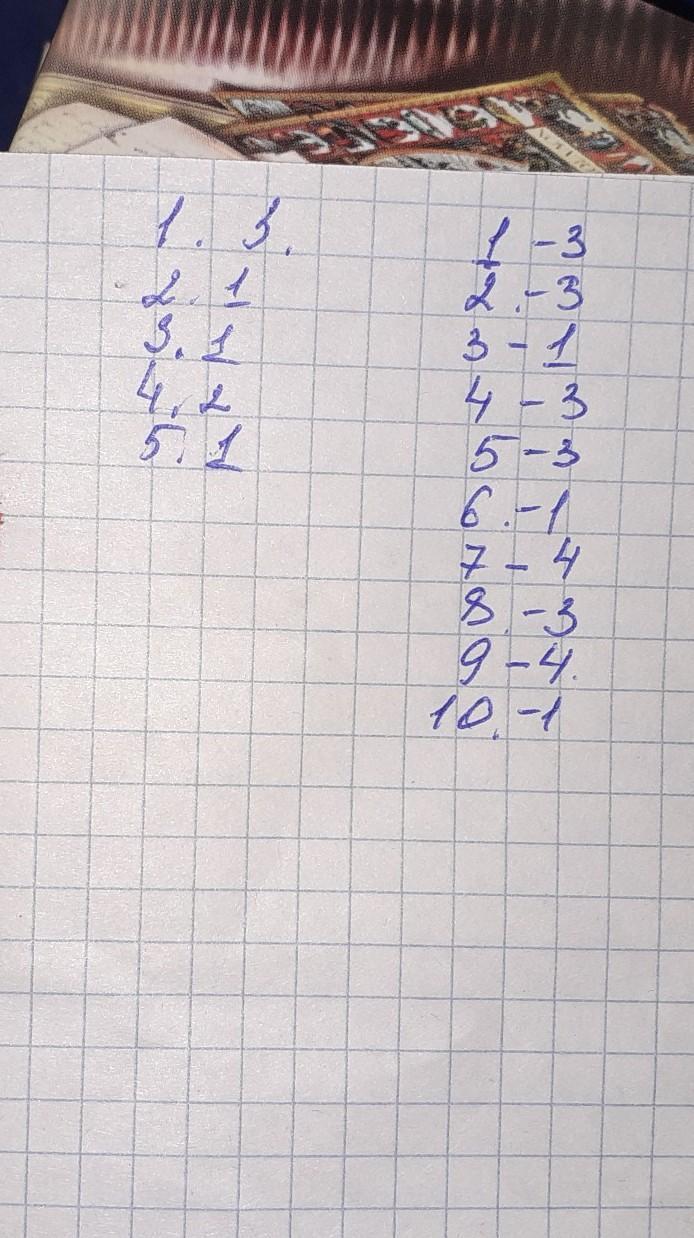 1. 3.
2. 1
3. 1
4. 2
5. 1
1 - 3
2. - 3
3 - 1
4 - 3
5 - 3
6. - 1
7 - 4
8. - 3
9 - 4.
10. - 1